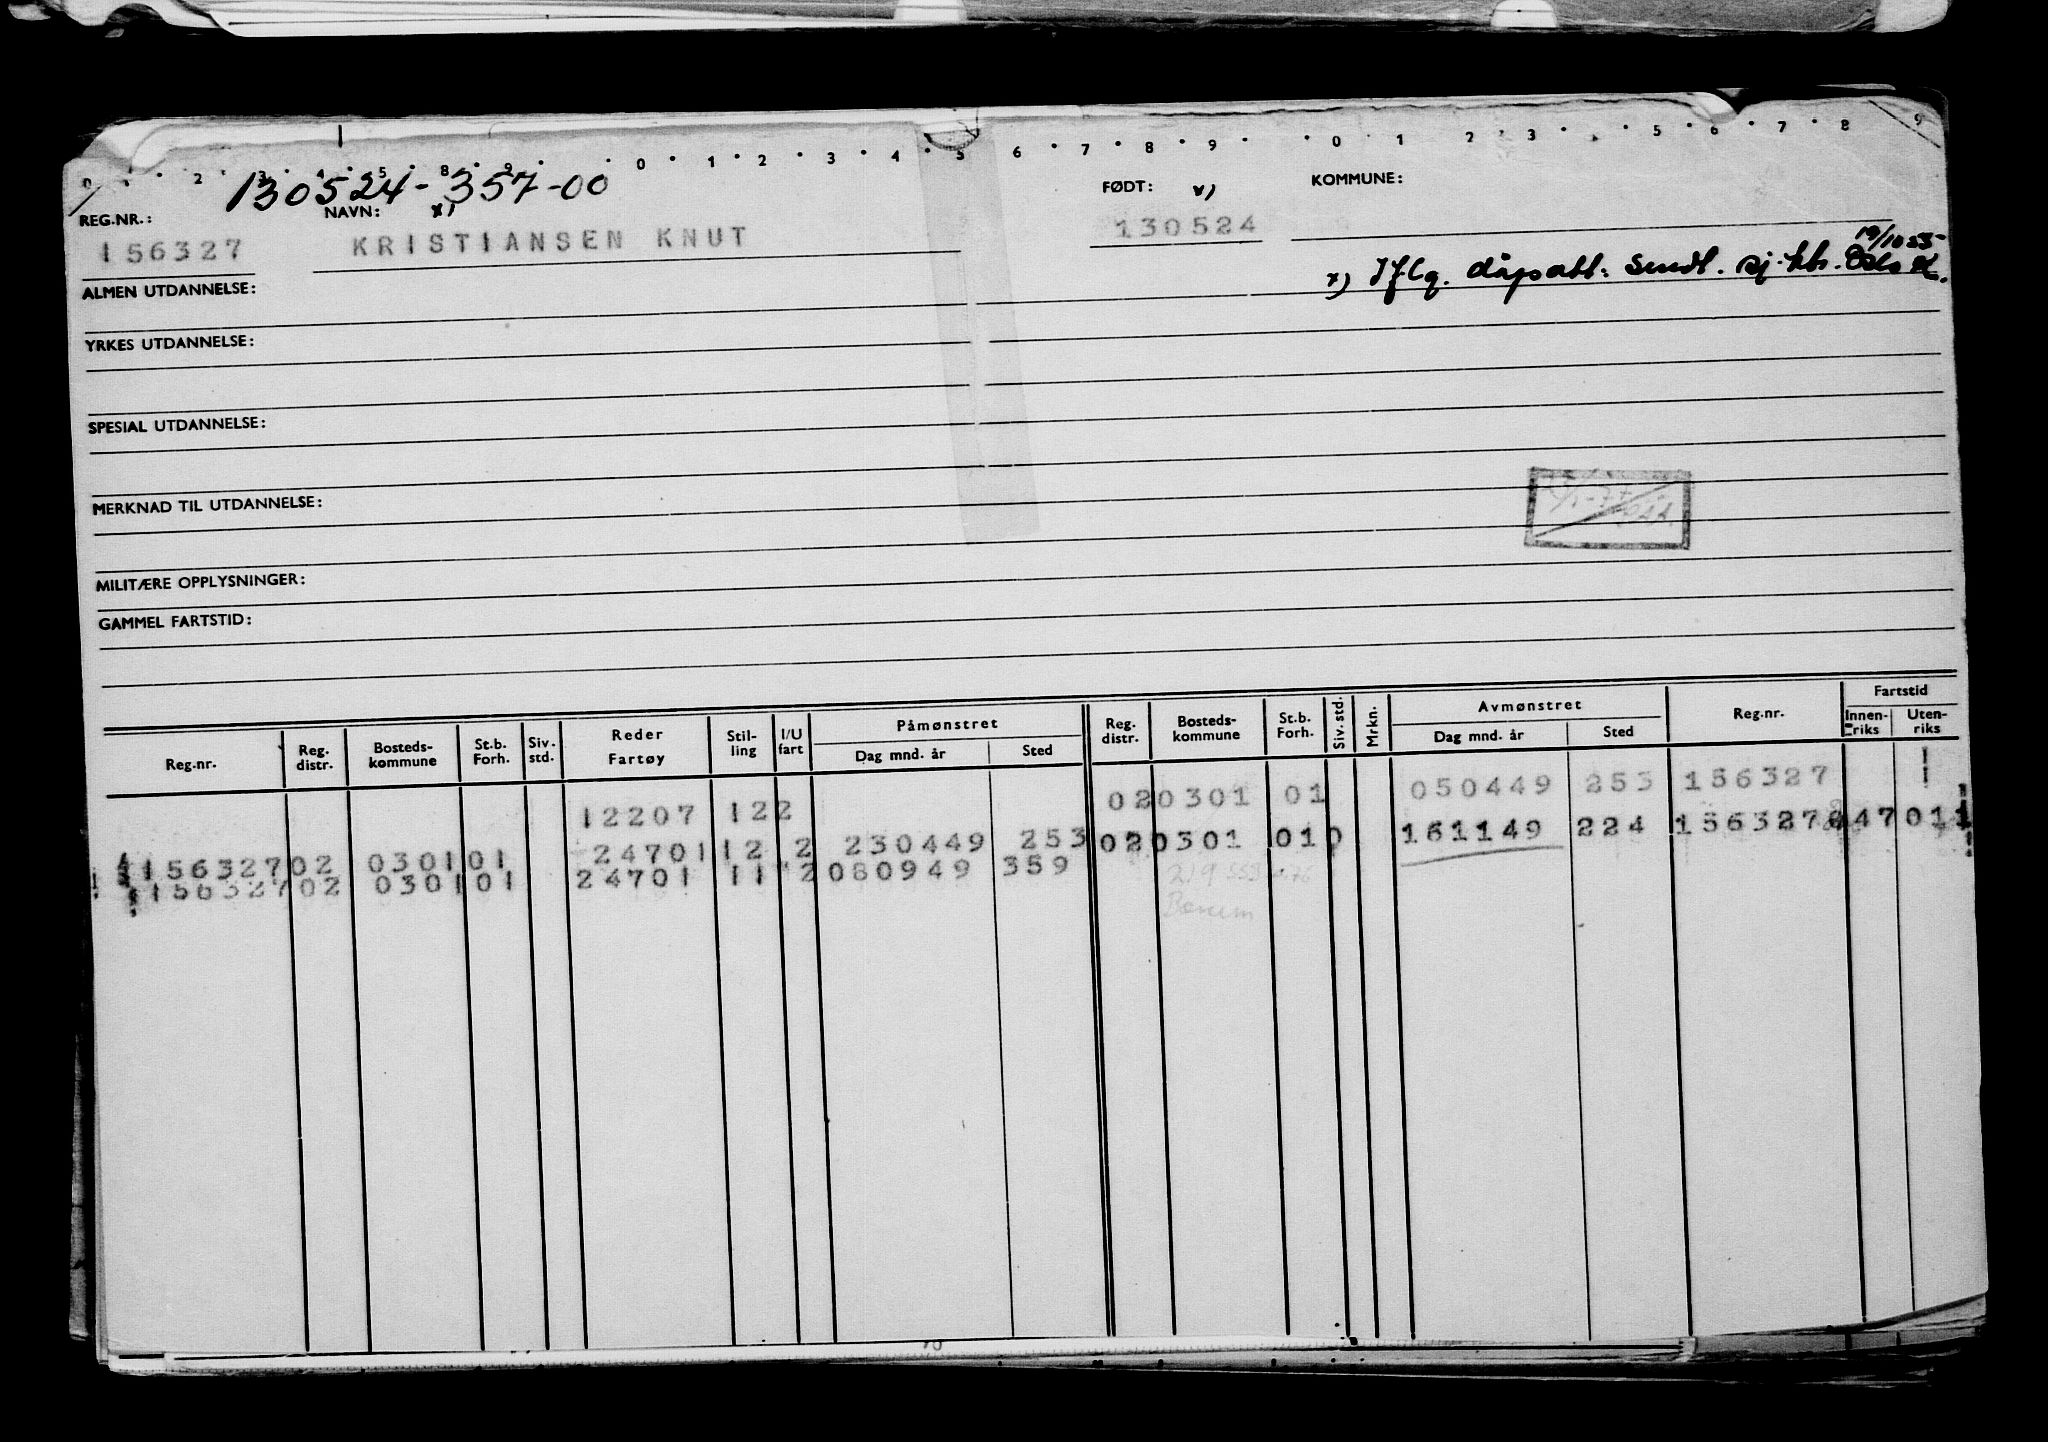 0 2 3 4 5 8 9 0 1 2 3 4 5 6 7 8 9 0 1 2 3 5 6 7 8 9
130524-357-00
REG.NR.: NAVN: x) FØDT: x) KOMMUNE:
156327 KRISTIANSEN KNUT 130524
19/10 55
x) Iflg. dåpsatt: Sendt. sj. ktr. Oslo
ALMEN UTDANNELSE:
YRKES UTDANNELSE:
SPESIAL UTDANNELSE:
MERKNAD TIL UTDANNELSE:
MILITÆRE OPPLYSNINGER:
GAMMEL FARTSTID:
Reg.nr. Reg. distr. Bosteds- kommune St.b. Forh. Siv. std. Reder Fartøy Stil- ling I/U fart Påmønstret Dag mnd. år Sted Reg. distr. Bosteds- kommune St.b. Forh. Siv. std. Mrkn. Avmønstret Dag mnd. år Sted Reg.nr. Fartstid Innen- riks Uten- riks
12207 122 020301 01 050449 253 156327
156327 02 0301 01 24701 12 2 230449 253 020301 010 161149 224 156327 47 011
156327 02 0301 01 24701 11 2 080949 359
Bærum